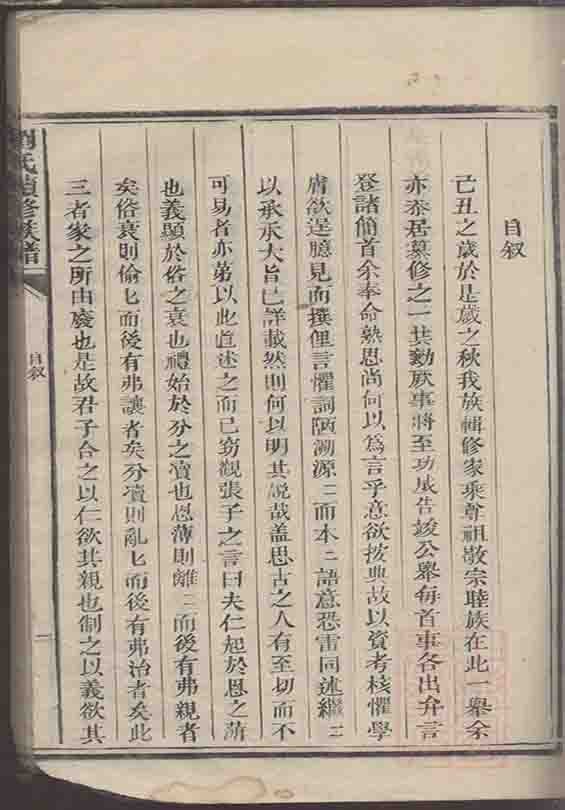 目叙
己丑之歲於是歲之秋我族輯修家乘尊祖敬宗睦族在此一舉余
亦忝居纂修之一共勷厥事將至功成告竣公舉每首事各出弁言
登諸簡首余奉命熟思尚何以爲言乎意欲按典故以資考核懼學
膚欲逞臆見而撰俚言懼詞陋溯源二而本二語意恐雷同述繼二
以承承大旨已詳載然則何以明其說哉盖思古之人有至切而不
可易者亦第以此直述之而已窃觀張子之言曰夫仁起於恩之薄
也義顯於俗之衰也禮始於分之瀆也恩薄則離二而後有弗親者
矣俗衰則偷匕而後有弗讓者矣分瀆則亂匕而後有弗治者矣此
三者家之所由廢也是故君子合之以仁欲其親也制之以義欲其
劉氏續修族譜
目叙
一